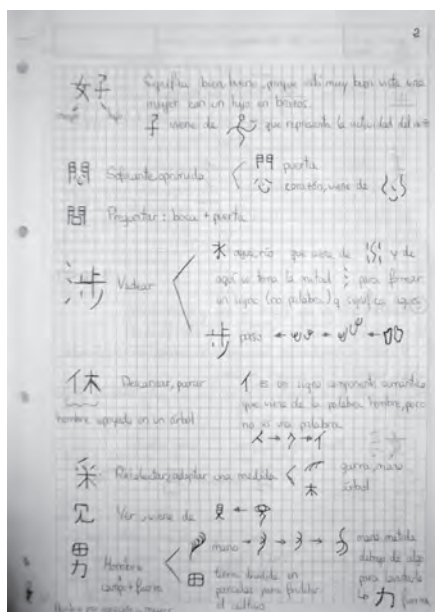 2
女子 Significa bien, bueno, porque está muy bien vista una
mujer con un hijo en brazos.
mujer hijo
子 viene de que representa la actividad del niño
悶 Sofocante, oprimido 門 puerta
心 corazón, viene de
問 Preguntar: boca + puerta
涉 Vadear
水 agua, río que viene de y de
aquí se toma la mitad 氵 para formar
un signo (no palabra) y significa agua
步 paso
休 Descansar, parar
亻 es un signo componente semántico
hombre apoyado en un árbol
que viene de la palabra hombre, pero
no es una palabra.
采 Recolectar, adoptar una medida garra, mano
木 árbol
见 Ver, viene de
男 Hombre
campo + fuerza
mano
mano metida
debajo de algo
para levantarlo
田 tierra dividida en
parcelas para facilitar
el cultivo
力 fuerza